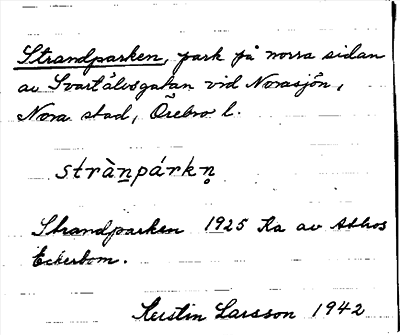 Strandparken, park på norra sidan
av Svartälvsgatan vid Norasjön,
Nora stad, Örebro l.
stràn̲párkn̥
Strandparken 1925 Ka av
Eckerbom.
Kerstin Larsson 1942